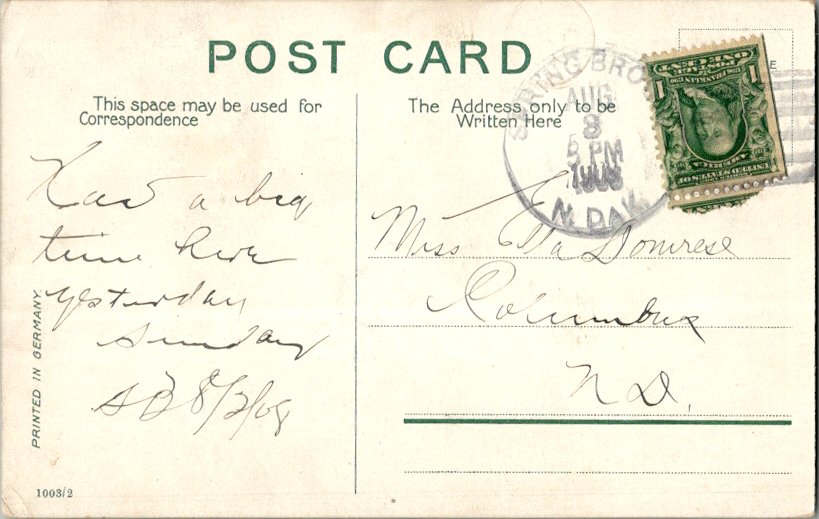 POST CARD
This space may be used for
Correspondence
The Address only to be
Written Here
SPRING BRO
AUG
3
5 PM
1908
N. DAK.
1
1
ONE CENT
POSTAGE
FRANKLIN
Had a big
time here
yesterday
Sunday
S B 8/3/08
Miss Ella
Columbus
N D.
PRINTED IN GERMANY.
1003/2